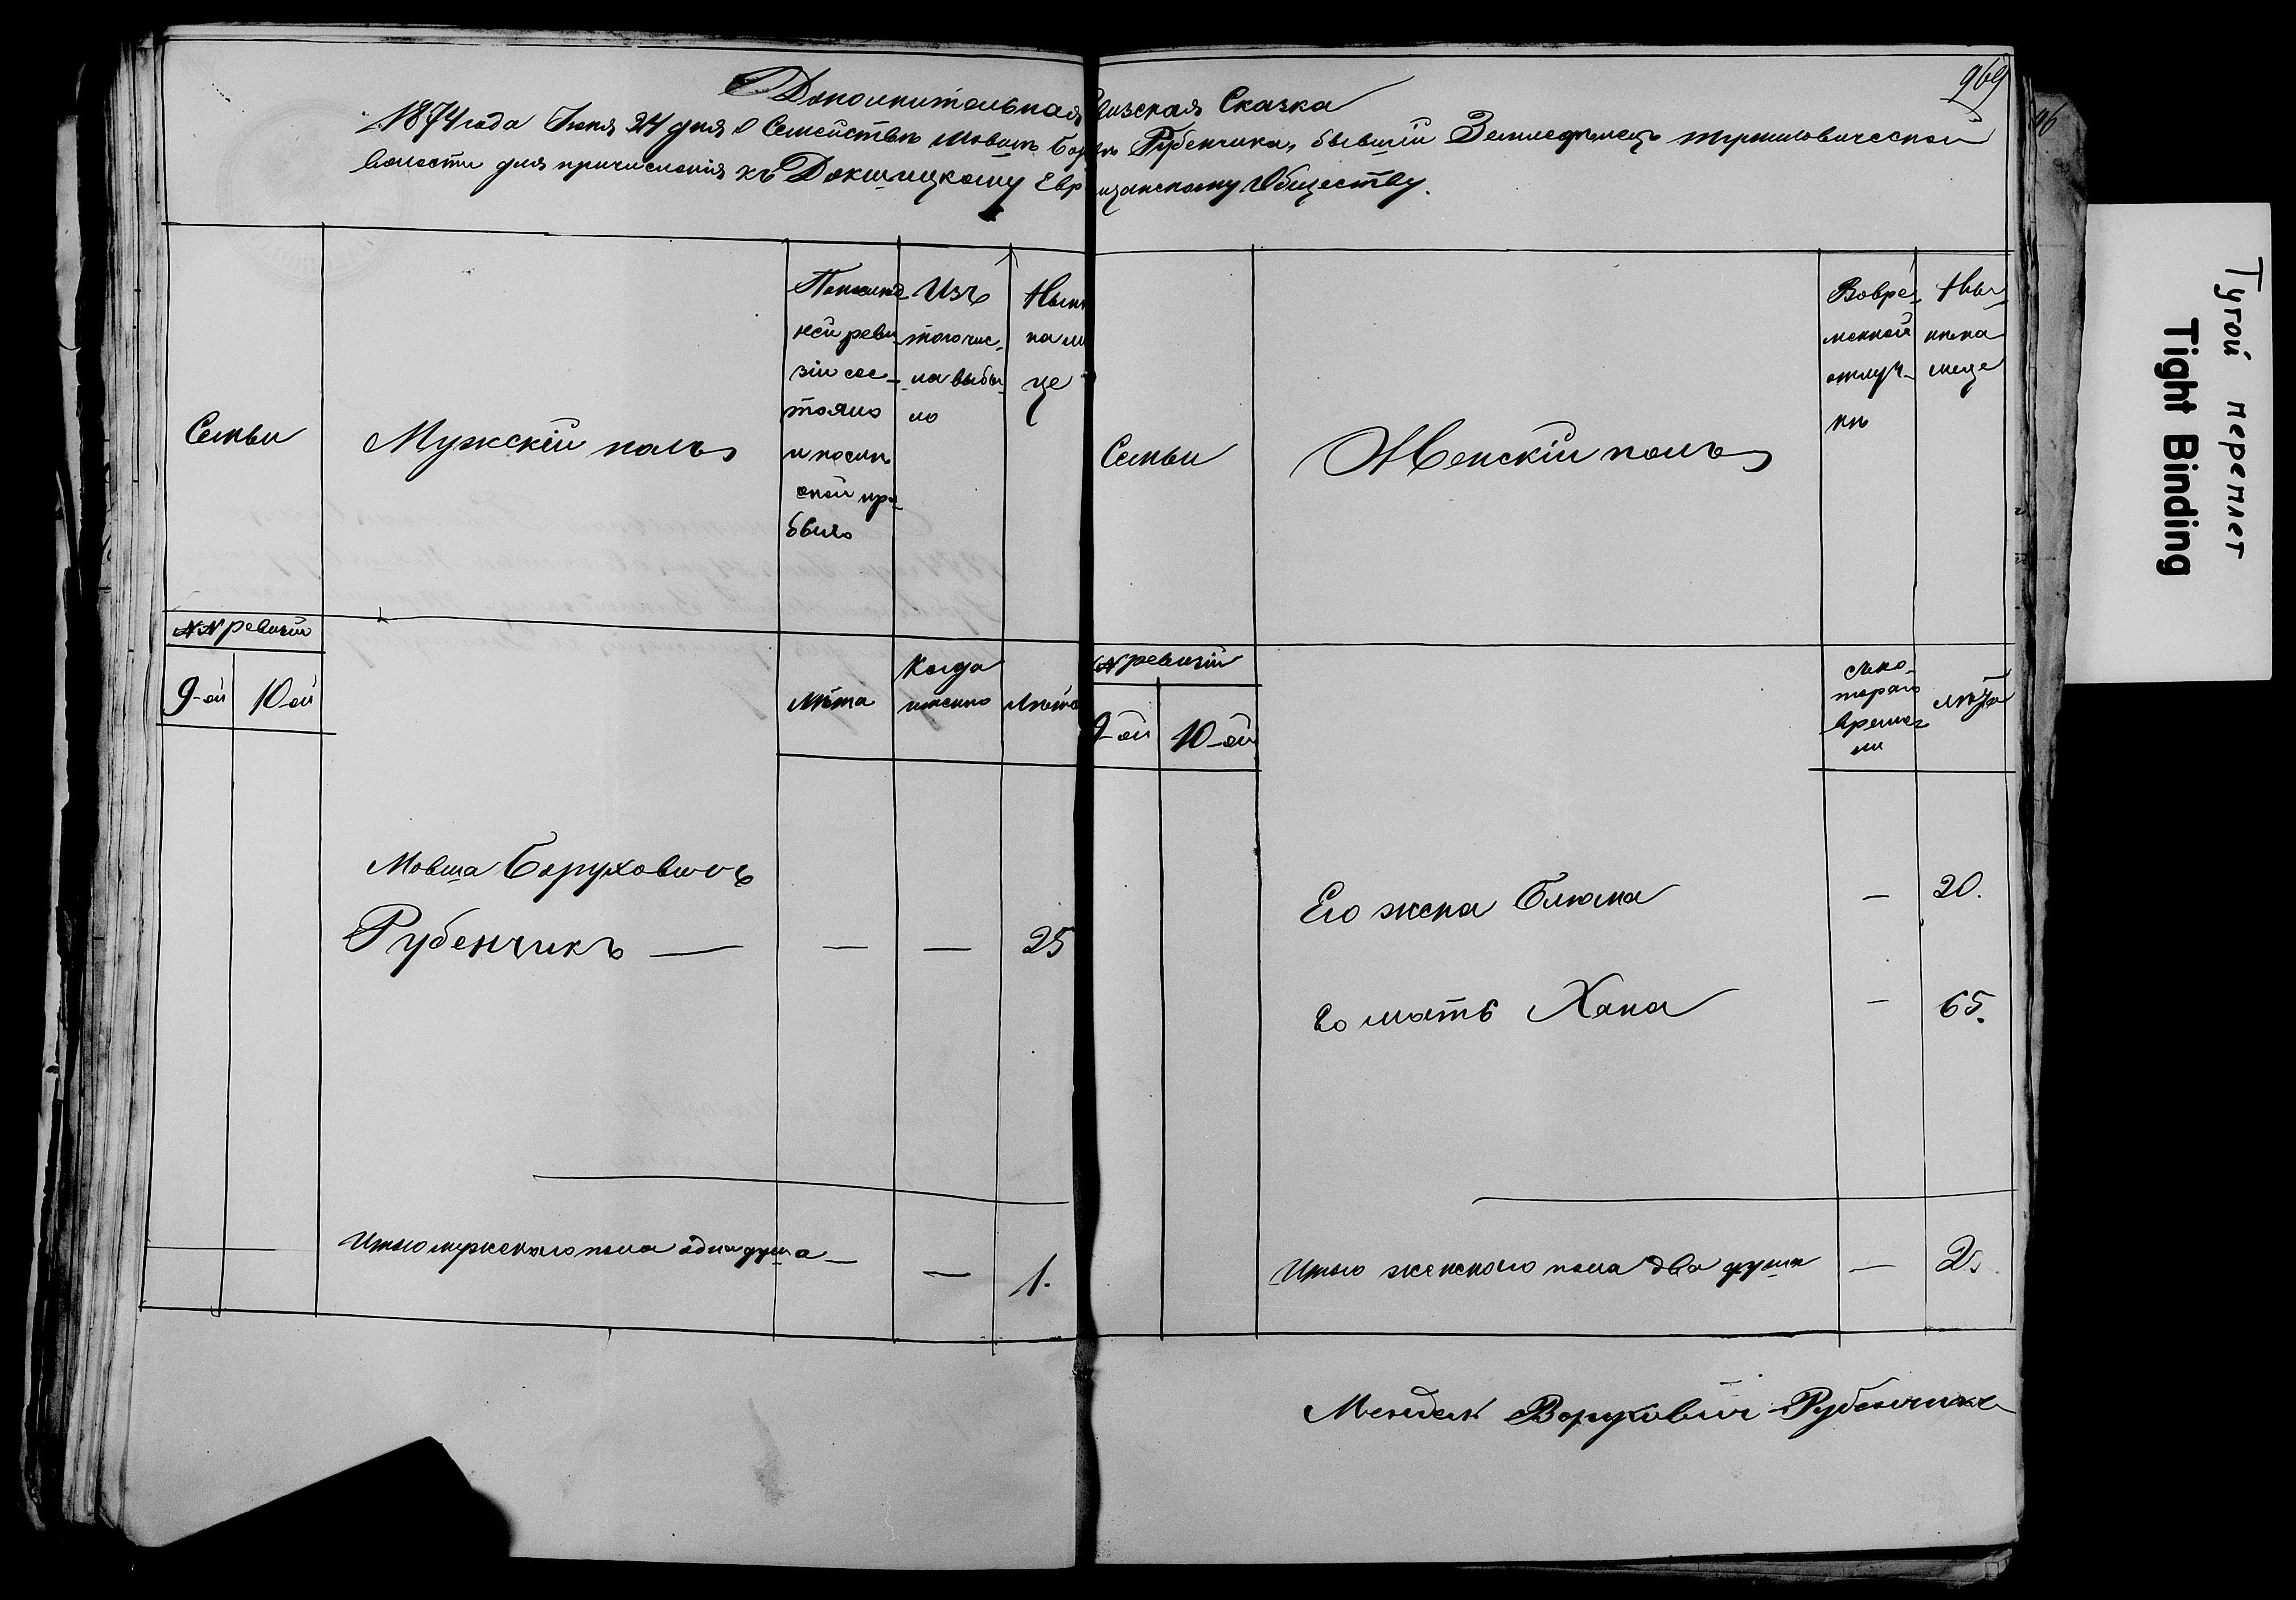 969
Дополнительная Ревизская Сказка
1874 года Июня 24 дня О Семействе Мовши Рубенчика, бывший Земледелец
волости для причисления къ Докшицкому Обществу.
Семьи
Мужскій полъ
ней реви-
зіи сос-
тояло
и после
оной при-
было
Изъ
того чис-
ла выбы-
ло
Семьи
Женскій полъ
Вовре-
менной
отлуч-
ке
Ны-
не на
лице
№№ ревизіи
9-ой
10-ой
Лѣта
Когда
именно
Лѣта
№ ревизіи
9-ой
10-ой
съ ко-
тораго
време-
ни
лѣта
Мовша Боруховичъ
Рубенчикъ — — — 25
Его жена Блюма — 20.
Ео мать Хана — 65.
Итого мужскаго пола одна душа — — 1.
Итого женскаго пола два души — 2.
Мендель Воруховичъ Рубенчикъ
Тугой переплет
Tight Binding